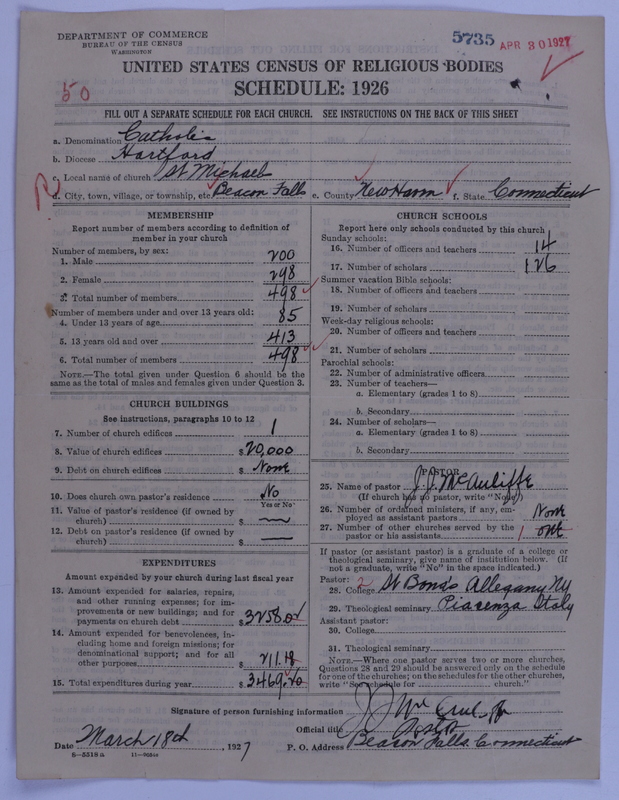 DEPARTMENT OF COMMERCE
BUREAU OF THE CENSUS
WASHINGTON
5735 APR 30 1927
UNITED STATES CENSUS OF RELIGIOUS BODIES
SCHEDULE: 1926
50
FILL OUT A SEPARATE SCHEDULE FOR EACH CHURCH. SEE INSTRUCTIONS ON THE BACK OF THIS SHEET
a. Denomination Catholic
b. Diocese Hartford
c. Local name of church St Michaels
d. City, town, village, or township, etc. Beacon Falls e. County New Haven f. State Connecticut
MEMBERSHIP
Report number of members according to definition of member in your church
Number of members, by sex:
1. Male 200
2. Female 298
3. Total number of members 498
Number of members under and over 13 years old:
4. Under 13 years of age 85
5. 13 years old and over 413
6. Total number of members 498
NOTE.—The total given under Question 6 should be the
same as the total of males and females given under Question 3.
CHURCH BUILDINGS
See instructions, paragraphs 10 to 12
7. Number of church edifices 1
8. Value of church edifices $20,000
9. Debt on church edifices $ None
10. Does church own pastor's residence No
Yes or No
11. Value of pastor's residence (if owned by
church) $
12. Debt on pastor's residence (if owned by
church) $
EXPENDITURES
Amount expended by your church during last fiscal year
13. Amount expended for salaries, repairs,
and other running expenses; for im-
provements or new buildings; and for
payments on church debt $3258.01
14. Amount expended for benevolences, in-
cluding home and foreign missions; for
denominational support; and for all
other purposes 211.18
15. Total expenditures during year $3469.20
CHURCH SCHOOLS
Report here only schools conducted by this church
Sunday schools:
16. Number of officers and teachers 14
17. Number of scholars 126
Summer vacation Bible schools:
18. Number of officers and teachers
19. Number of scholars
Week-day religious schools:
20. Number of officers and teachers
21. Number of scholars
Parochial schools:
22. Number of administrative officers
23. Number of teachers—
a. Elementary (grades 1 to 8)
b. Secondary
24. Number of scholars—
a. Elementary (grades 1 to 8)
b. Secondary
PASTOR
25. Name of pastor J. J. McAuliffe
(If church has no pastor, write "None")
26. Number of ordained ministers, if any, em-
ployed as assistant pastors None
27. Number of other churches served by the
pastor or his assistants 1 one
If pastor (or assistant pastor) is a graduate of a college or
theological seminary, give name of institution below. (If
not a graduate, write "No" in the space indicated.)
Pastor:
28. College 2 St Bonas Allegany NY
29. Theological seminary Piacenza Italy
Assistant pastor:
30. College
31. Theological seminary
NOTE.—Where one pastor serves two or more churches,
Questions 28 and 29 should be answered only on the schedule
for one of the churches; on the schedules for the other churches,
write "See schedule for church."
Signature of person furnishing information J. J. McAuliffe
Official title Pastor
Date March 18th, 1927 P. O. Address Beacon Falls, Connecticut
8-5518a